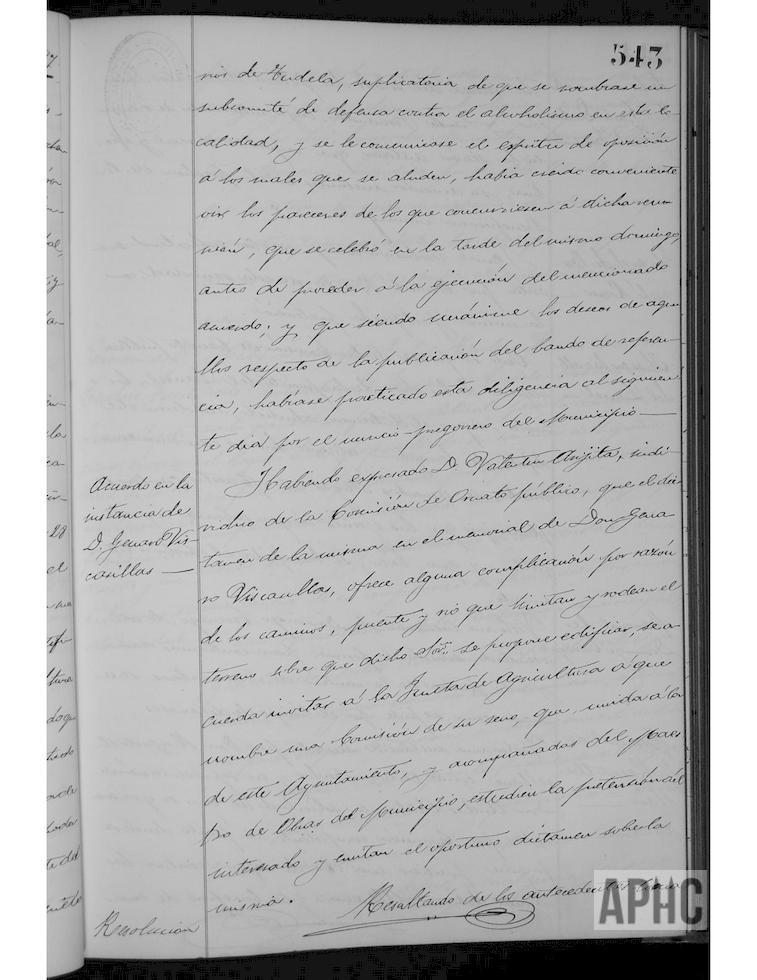 543
rios de Tudela, suplicatoria de que se nombrase un
subcomité de defensa contra el alcoholismo en esta lo-
calidad, y se le comunicase el espíritu de oposición
á los males que se aluden, había creido conveniente
oir los pareceres de los que concurriesen á dicha reu-
nión, que se celebró en la tarde del mismo domingo,
antes de proceder á la ejecución del mencionado
acuerdo; y que siendo unánime los deseos de aque-
llos respecto de la publicación del bando de referen-
cia, habíase practicado esta diligencia al siguien-
te dia por el nuncio-pregonero del Municipio—
Acuerdo en la
instancia de
D. Genaro Vis-
casillas—
Habiendo expresado D. Valentin Anjita, indi-
viduo de la Comisión de Ornato público, que el dic-
tamen de la misma en el memorial de Don Gena-
ro Viscasillas, ofrece alguna complicación por razón
de los caminos, puente y rio que limitan y rodean el
terreno sobre que dicho Sor. se propone edificar, se a-
cuerda invitar á la Junta de Agricultura á que
nombre una Comisión de su seno, que, unida á la
de este Ayuntamiento, y acompañadas del Maes-
tro de Obras del Municipio, estudien la pretensión del
interesado y emitan el oportuno dictámen sobre la
misma.
Resolución
Resultando de los antecedentes
APHC